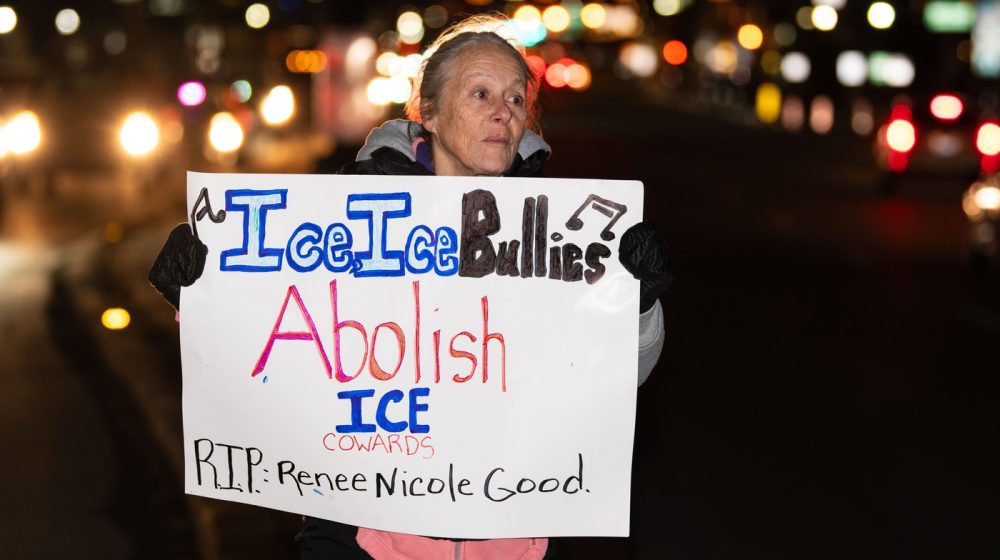 ♪ Ice, Ice Bullies ♫
Abolish
ICE
COWARDS
R.I.P.: Renee Nicole Good.